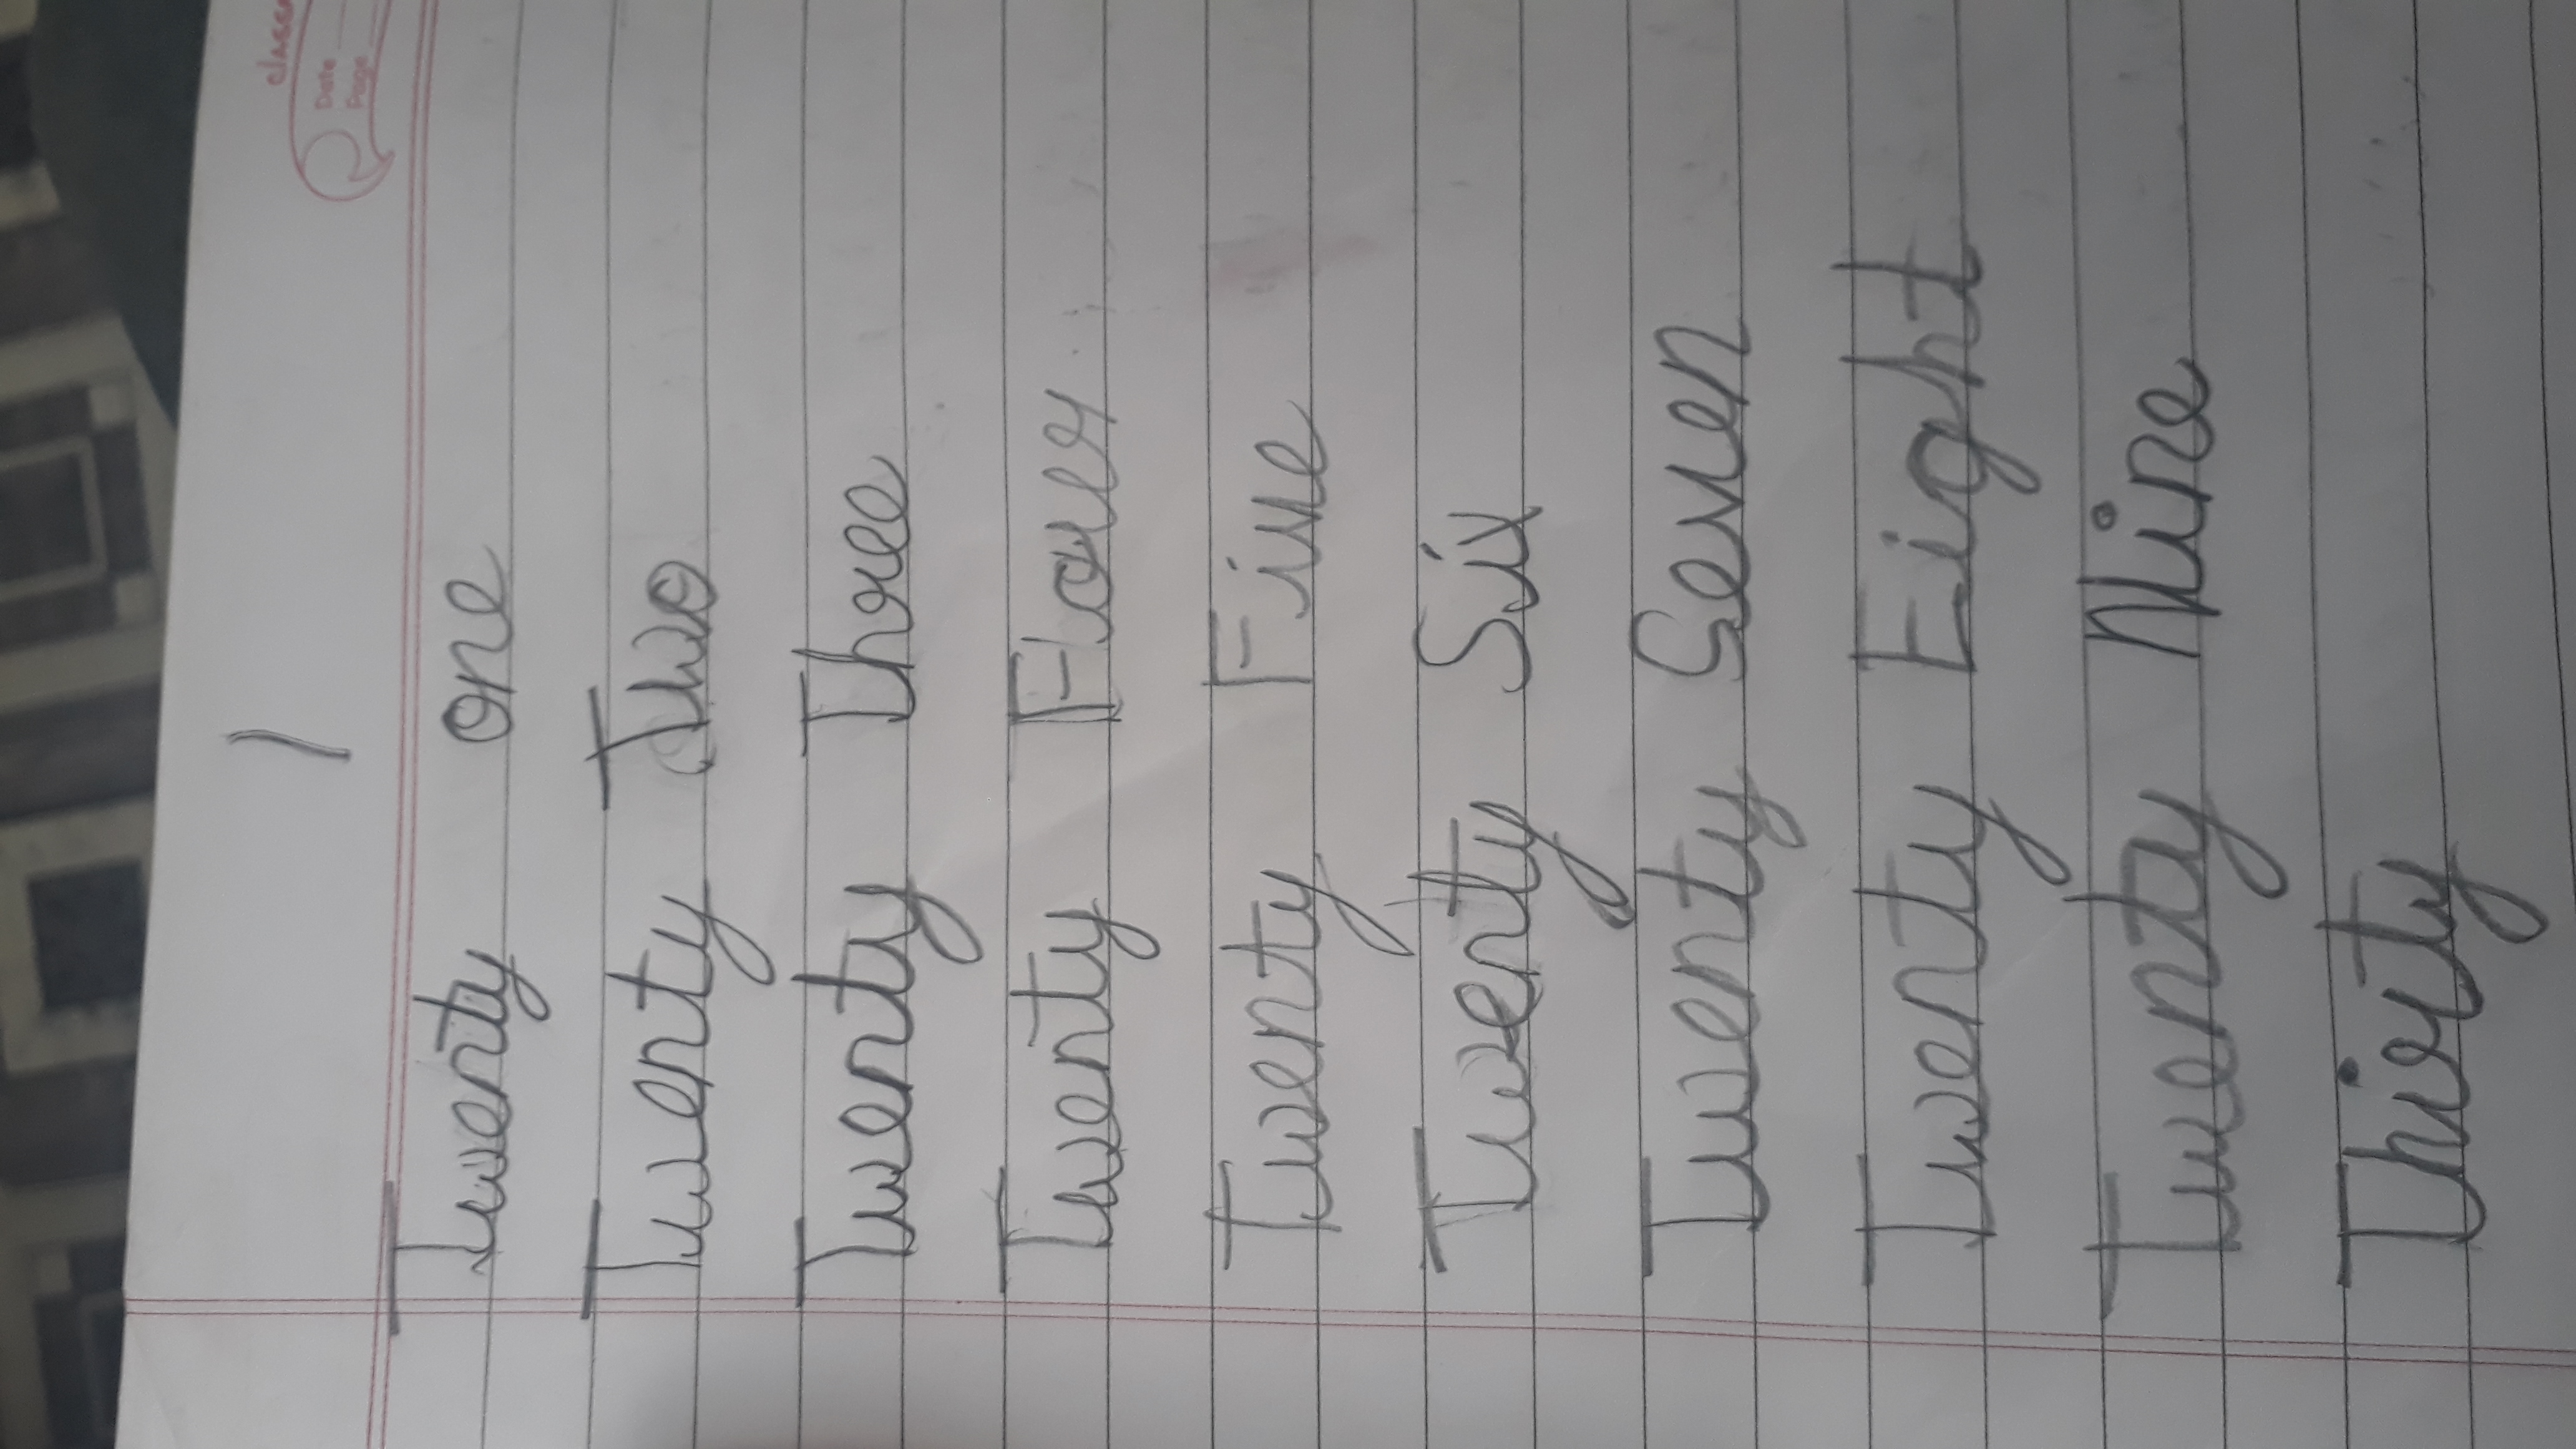 Date
Page
1
Twenty one
Twenty Two
Twenty Three
Twenty Four
Twenty Five
Twenty Six
Twenty Seven
Twenty Eight
Twenty Nine
Thirty